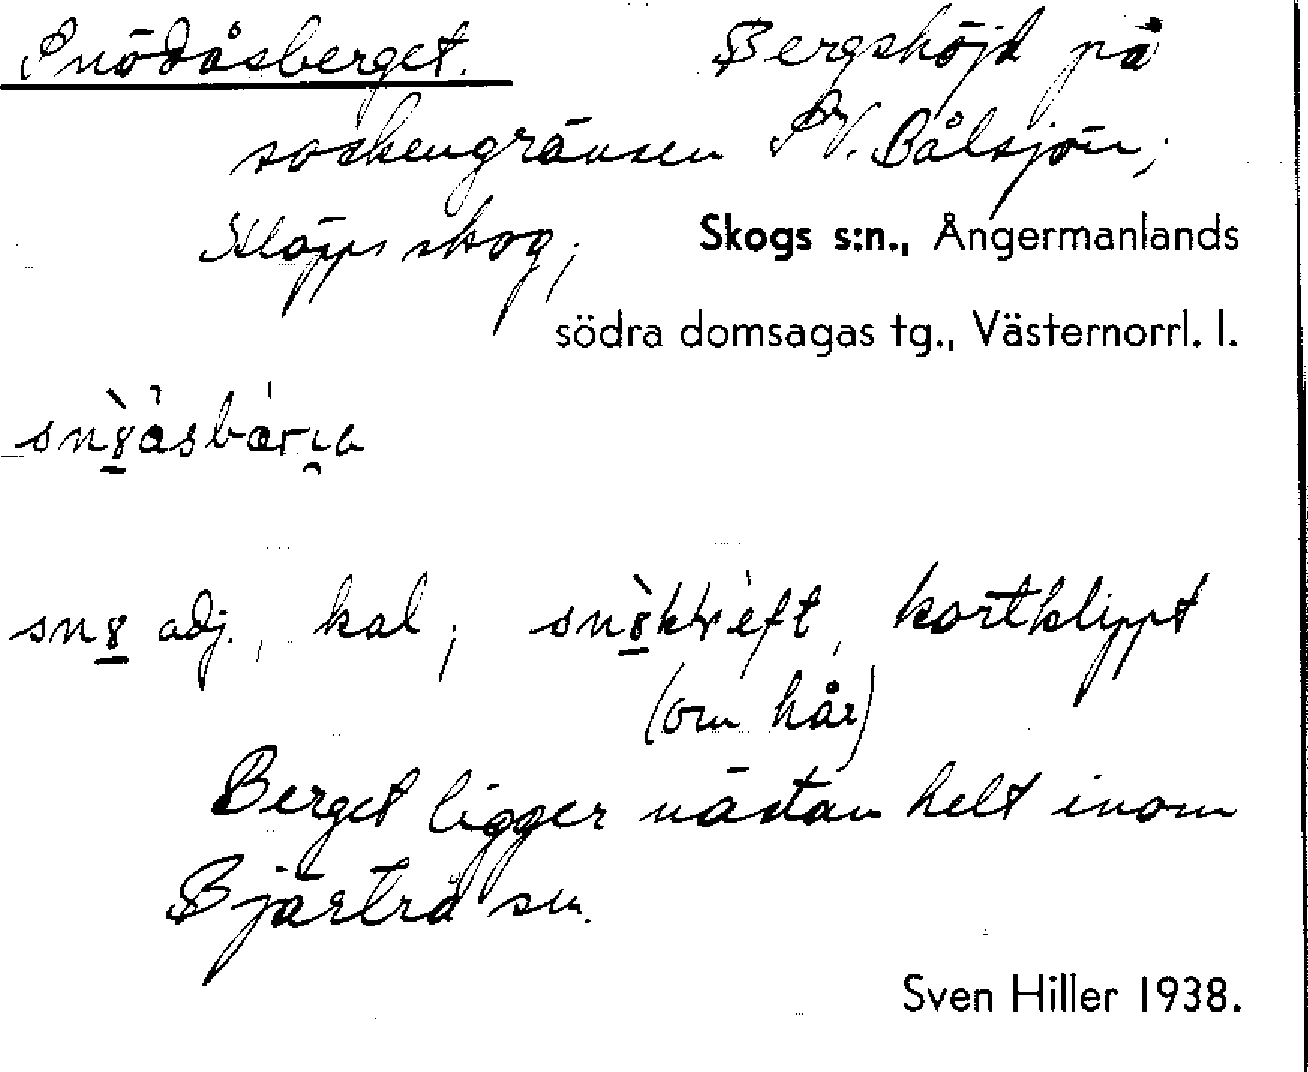 Snödåsberget. Bergshöjd på
sockengränsen SV. Bålsjön;
Kläpps skog; Skogs s:n., Ångermanlands
södra domsagas tg., Västernorrl. l.
adj., kal; kortklippt
(om hår)
Berget ligger nästan helt inom
Bjärtrå sn.
Sven Hiller 1938.